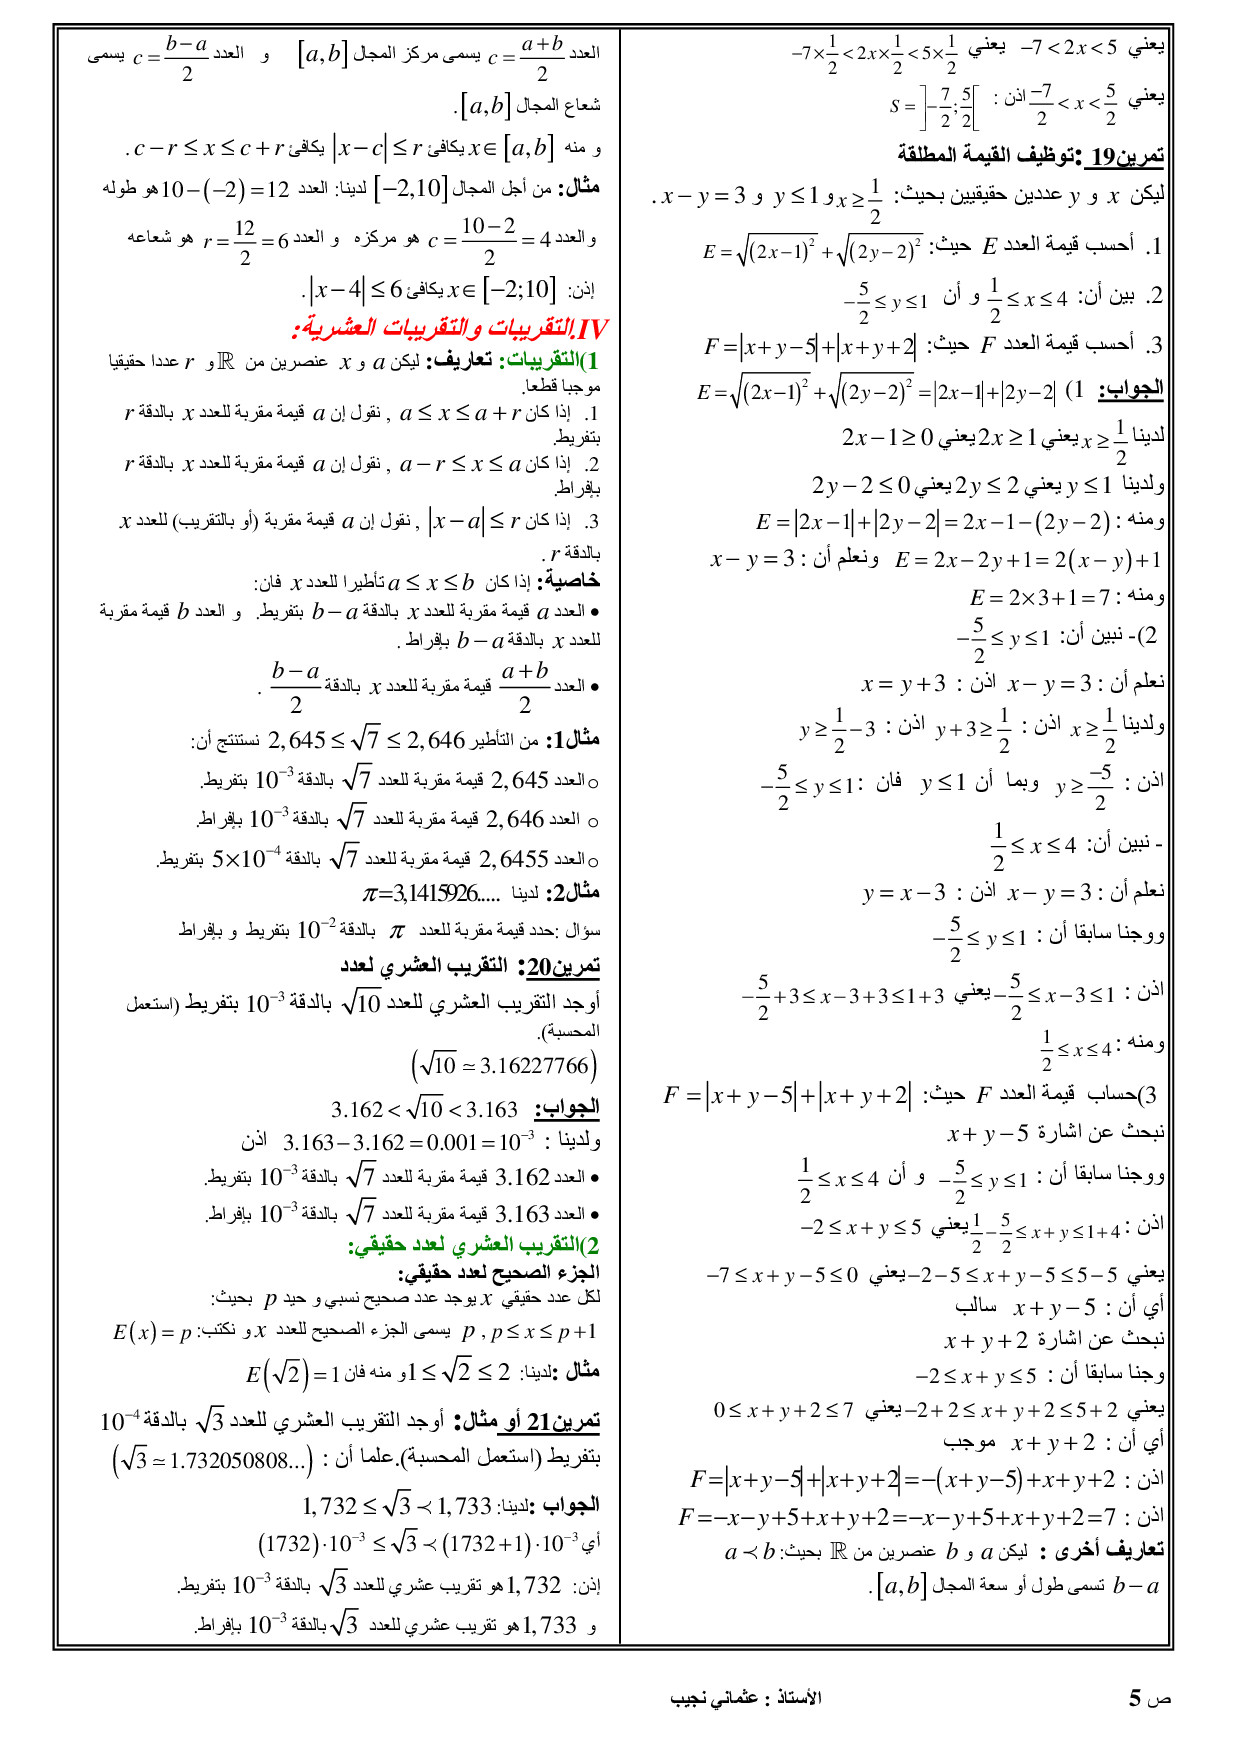 يعني $-7 < 2x < 5$ يعني $-7\times\frac{1}{2} < 2x\times\frac{1}{2} < 5\times\frac{1}{2}$
يعني $\frac{-7}{2} < x < \frac{5}{2}$ اذن : $S = \left]-\frac{7}{2};\frac{5}{2}\right[$
تمرين19 :توظيف القيمة المطلقة
ليكن $x$ و $y$ عددين حقيقيين بحيث: $x \geq \frac{1}{2}$ و $y \leq 1$ و $x - y = 3$ .
1. أحسب قيمة العدد $E$ حيث: $E = \sqrt{(2x-1)^2} + \sqrt{(2y-2)^2}$
2. بين أن: $\frac{1}{2} \leq x \leq 4$ و أن $-\frac{5}{2} \leq y \leq 1$
3. أحسب قيمة العدد $F$ حيث: $F = |x+y-5| + |x+y+2|$
الجواب: 1) $E = \sqrt{(2x-1)^2} + \sqrt{(2y-2)^2} = |2x-1| + |2y-2|$
لدينا $x \geq \frac{1}{2}$ يعني $2x \geq 1$ يعني $2x-1 \geq 0$
ولدينا $y \leq 1$ يعني $2y \leq 2$ يعني $2y-2 \leq 0$
ومنه : $E = |2x-1| + |2y-2| = 2x-1-(2y-2)$
$E = 2x-2y+1 = 2(x-y)+1$ ونعلم أن : $x-y=3$
ومنه : $E = 2\times3+1 = 7$
2)- نبين أن: $-\frac{5}{2} \leq y \leq 1$
نعلم أن : $x-y=3$ اذن : $x = y+3$
ولدينا $x \geq \frac{1}{2}$ اذن : $y+3 \geq \frac{1}{2}$ اذن : $y \geq \frac{1}{2}-3$
اذن : $y \geq \frac{-5}{2}$ وبما أن $y \leq 1$ فان : $-\frac{5}{2} \leq y \leq 1$
- نبين أن: $\frac{1}{2} \leq x \leq 4$
نعلم أن : $x-y=3$ اذن : $y = x-3$
ووجنا سابقا أن : $-\frac{5}{2} \leq y \leq 1$
اذن : $-\frac{5}{2} \leq x-3 \leq 1$ يعني $-\frac{5}{2}+3 \leq x-3+3 \leq 1+3$
ومنه : $\frac{1}{2} \leq x \leq 4$
3)حساب قيمة العدد $F$ حيث: $F = |x+y-5| + |x+y+2|$
نبحث عن اشارة $x+y-5$
ووجنا سابقا أن : $-\frac{5}{2} \leq y \leq 1$ و أن $\frac{1}{2} \leq x \leq 4$
اذن : $\frac{1}{2}-\frac{5}{2} \leq x+y \leq 1+4$ يعني $-2 \leq x+y \leq 5$
يعني $-2-5 \leq x+y-5 \leq 5-5$ يعني $-7 \leq x+y-5 \leq 0$
أي أن : $x+y-5$ سالب
نبحث عن اشارة $x+y+2$
وجنا سابقا أن : $-2 \leq x+y \leq 5$
يعني $-2+2 \leq x+y+2 \leq 5+2$ يعني $0 \leq x+y+2 \leq 7$
أي أن : $x+y+2$ موجب
اذن : $F = |x+y-5| + |x+y+2| = -(x+y-5)+x+y+2$
اذن : $F = -x-y+5+x+y+2 = -x-y+5+x+y+2 = 7$
تعاريف أخرى : ليكن $a$ و $b$ عنصرين من $\mathbb{R}$ بحيث: $a \prec b$
$b-a$ تسمى طول أو سعة المجال $[a,b]$ .
العدد $c = \frac{a+b}{2}$ يسمى مركز المجال $[a,b]$ و العدد $c = \frac{b-a}{2}$ يسمى
شعاع المجال $[a,b]$ .
و منه $x \in [a,b]$ يكافئ $|x-c| \leq r$ يكافئ $c-r \leq x \leq c+r$ .
مثال: من أجل المجال $[-2,10]$ لدينا: العدد $10-(-2)=12$ هو طوله
والعدد $c = \frac{10-2}{2} = 4$ هو مركزه و العدد $r = \frac{12}{2} = 6$ هو شعاعه
إذن: $x \in [-2;10]$ يكافئ $|x-4| \leq 6$ .
IV.التقريبات والتقريبات العشرية:
1)التقريبات: تعاريف: ليكن $a$ و $x$ عنصرين من $\mathbb{R}$ و $r$ عددا حقيقيا
موجبا قطعا.
1. إذا كان $a \leq x \leq a+r$ , نقول إن $a$ قيمة مقربة للعدد $x$ بالدقة $r$
بتفريط.
2. إذا كان $a-r \leq x \leq a$ , نقول إن $a$ قيمة مقربة للعدد $x$ بالدقة $r$
بإفراط.
3. إذا كان $|x-a| \leq r$ , نقول إن $a$ قيمة مقربة (أو بالتقريب) للعدد $x$
بالدقة $r$ .
خاصية: إذا كان $a \leq x \leq b$ تأطيرا للعدد $x$ فان:
• العدد $a$ قيمة مقربة للعدد $x$ بالدقة $b-a$ بتفريط. و العدد $b$ قيمة مقربة
للعدد $x$ بالدقة $b-a$ بإفراط .
• العدد $\frac{a+b}{2}$ قيمة مقربة للعدد $x$ بالدقة $\frac{b-a}{2}$ .
مثال1: من التأطير $2,645 \leq \sqrt{7} \leq 2,646$ نستنتج أن:
o العدد $2,645$ قيمة مقربة للعدد $\sqrt{7}$ بالدقة $10^{-3}$ بتفريط.
o العدد $2,646$ قيمة مقربة للعدد $\sqrt{7}$ بالدقة $10^{-3}$ بإفراط.
o العدد $2,6455$ قيمة مقربة للعدد $\sqrt{7}$ بالدقة $5\times10^{-4}$ بتفريط.
مثال2: لدينا $\pi=3,1415926.....$
سؤال :حدد قيمة مقربة للعدد $\pi$ بالدقة $10^{-2}$ بتفريط و بإفراط
تمرين20: التقريب العشري لعدد
أوجد التقريب العشري للعدد $\sqrt{10}$ بالدقة $10^{-3}$ بتفريط (استعمل
المحسبة).
$(\sqrt{10} \simeq 3.16227766)$
الجواب: $3.162 < \sqrt{10} < 3.163$
ولدينا : $3.163-3.162 = 0.001 = 10^{-3}$ اذن
• العدد $3.162$ قيمة مقربة للعدد $\sqrt{7}$ بالدقة $10^{-3}$ بتفريط.
• العدد $3.163$ قيمة مقربة للعدد $\sqrt{7}$ بالدقة $10^{-3}$ بإفراط.
2)التقريب العشري لعدد حقيقي:
الجزء الصحيح لعدد حقيقي:
لكل عدد حقيقي $x$ يوجد عدد صحيح نسبي و حيد $p$ بحيث:
$p \leq x \leq p+1$ , $p$ يسمى الجزء الصحيح للعدد $x$ و نكتب: $E(x) = p$
مثال :لدينا: $1 \leq \sqrt{2} \leq 2$ و منه فان $E(\sqrt{2}) = 1$
تمرين21 أو مثال: أوجد التقريب العشري للعدد $\sqrt{3}$ بالدقة $10^{-4}$
بتفريط (استعمل المحسبة).علما أن : $(\sqrt{3} \simeq 1.732050808...)$
الجواب :لدينا: $1,732 \leq \sqrt{3} \prec 1,733$
أي $(1732)\cdot10^{-3} \leq \sqrt{3} \prec (1732+1)\cdot10^{-3}$
إذن: $1,732$ هو تقريب عشري للعدد $\sqrt{3}$ بالدقة $10^{-3}$ بتفريط.
و $1,733$ هو تقريب عشري للعدد $\sqrt{3}$ بالدقة $10^{-3}$ بإفراط.
ص 5 الأستاذ : عثماني نجيب